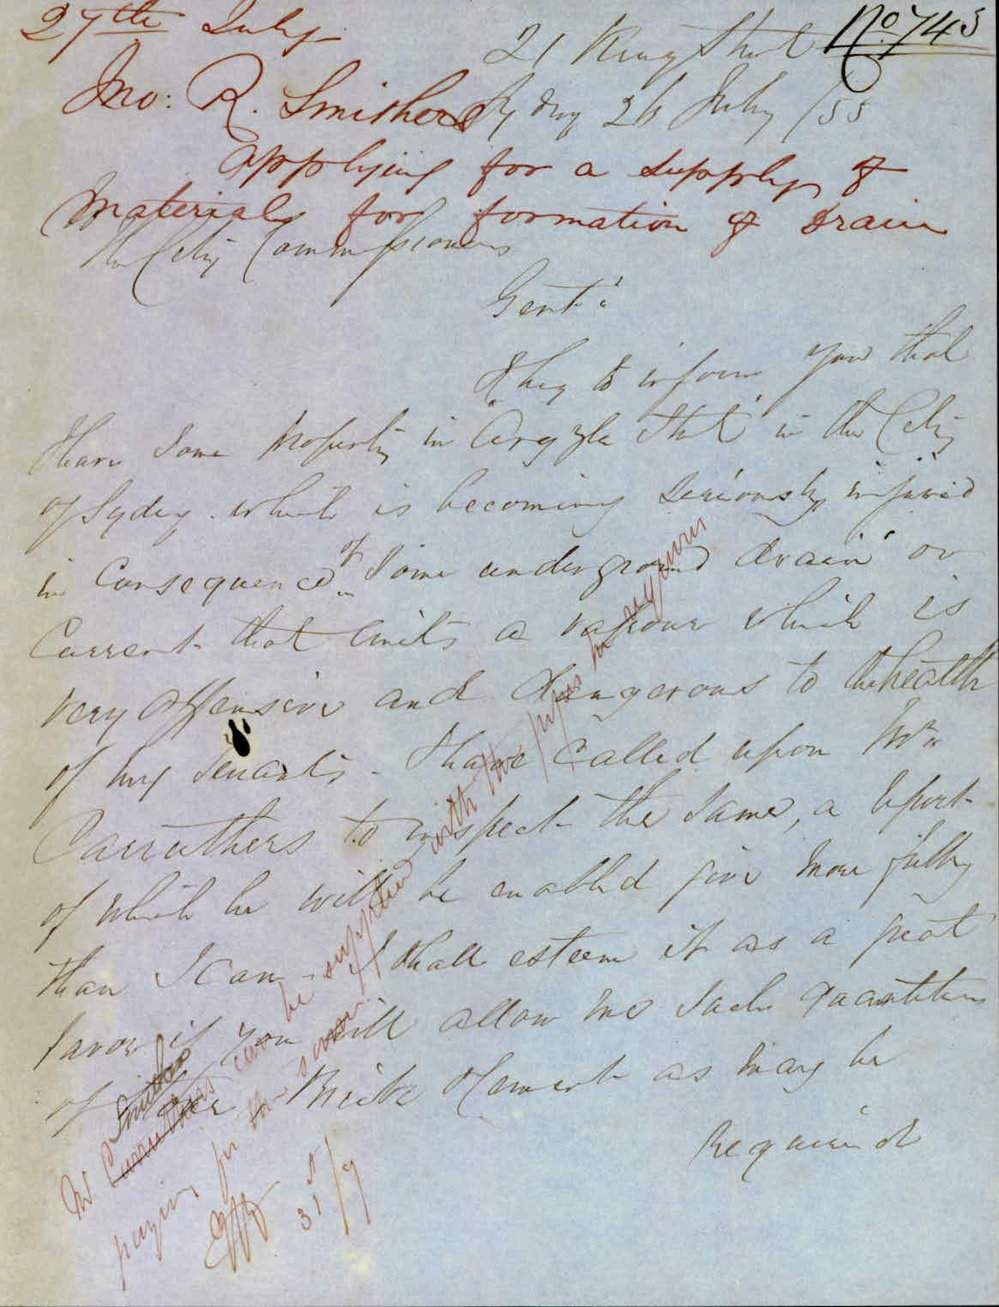 27th July
No 745
21 King Street
Jno: R. Smithers
Sydney 26 July /55
applying for a supply of
Materials for formation of Drain
The City Commissioners
Gent:
I beg to inform you that
I have some property in Argyle Street in the City
of Sydney which is becoming seriously injured
in Consequence of some underground drain or
Current that emits a vapour which is
very offensive and dangerous to the health
of my tenants. I have called upon Mr
Carruthers to inspect the same, a report
of which he will be enabled give more fully
than I can - I shall esteem it as a great
favor if you will allow me such quantities
of Bricks & Cement as may be
required
Mr Carruthers Smithers can be supplied with the pipes he requires
paying for the same
31st/7